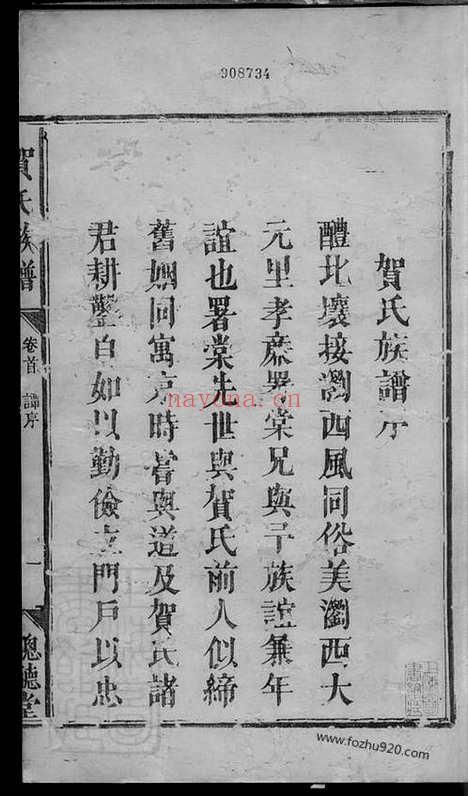 908734
賀氏族譜序
醴北壤接瀏西風同俗美瀏西大
元里孝廉署棠兄與予族誼兼年
誼也署棠先世與賀氏前人似締
舊姻同寓京時嘗與道及賀氏諸
君耕鑿自如以勤儉立門戶以忠
賀氏族譜
卷首 譜序
一
聰聽堂
nayona.cn
www.fozhu920.com